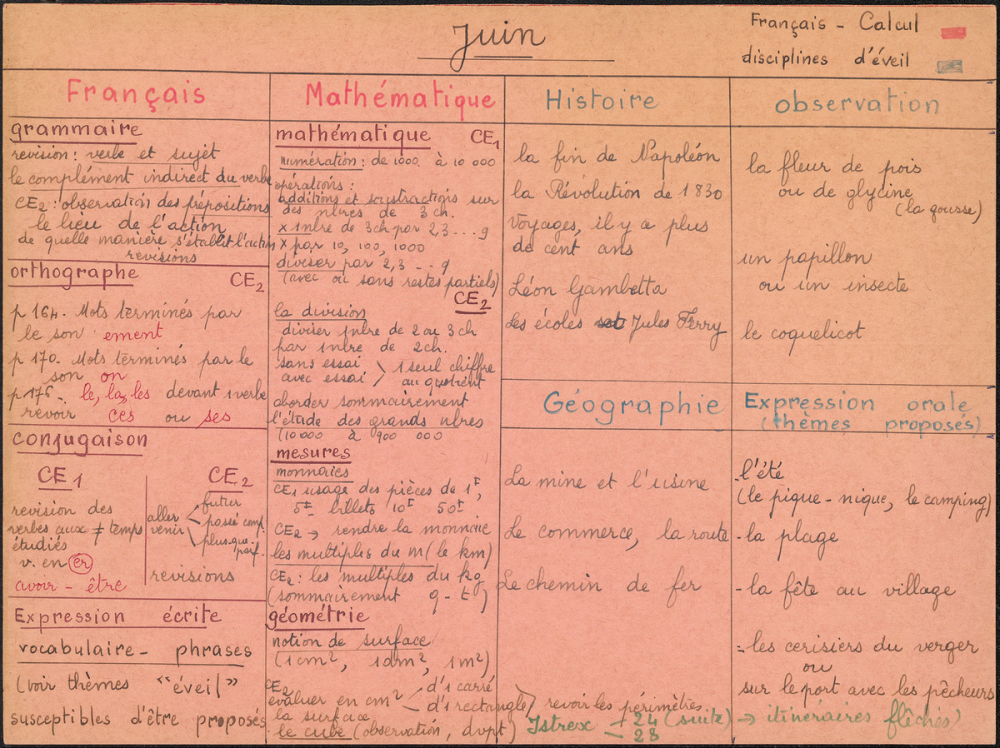 Juin
Français - Calcul
disciplines d'éveil
Français
grammaire
revision: verbe et sujet
le complément indirect du verbe
CE2: observation des prépositions
le lieu de l'action
de quelle manière s'établit l'action
revisions
orthographe CE2
p 164. Mots terminés par
le son ement
p 170. Mots terminés par le
son on
p 175. le, la, les devant verbe
revoir ces ou ses
conjugaison
CE1
revision des
verbes aux ≠ temps
étudiés
v. en er
avoir - être
CE2
aller
venir
futur
passé comp.
plus-que-parf.
revisions
Expression écrite
vocabulaire - phrases
(voir thèmes "éveil"
susceptibles d'être proposés
Mathématique
mathématique CE1
numération: de 1000 à 10 000
opérations:
additions et soustractions sur
des nbres de 3 ch.
x 1 nbre de 3 ch par 2,3...9
x par 10, 100, 1000
diviser par 2,3...9
(avec ou sans restes partiels)
CE2
la division
diviser 1 nbre de 2 ou 3 ch
par 1 nbre de 2 ch.
sans essai
avec essai
1 seul chiffre
au quotient
aborder sommairement
l'étude des grands nbres
(10 000 à 900 000
mesures
monnaies
CE1 usage des pièces de 1F,
5F billets 10F 50F
CE2 → rendre la monnaie
les multiples du m (le km)
CE2: les multiples du kg
(sommairement q - t)
géométrie
notion de surface
(1 cm², 1 dm², 1 m²)
CE2
évaluer en cm²
la surface
d's carré
d's rectangle
revoir les périmètres
le cube (observation, dvpt)
Histoire
la fin de Napoléon
la Révolution de 1830
Voyages, il y a plus
de cent ans
Léon Gambetta
Les écoles Jules Ferry
Géographie
La mine et l'usine
Le commerce, la route
Le chemin de fer
observation
la fleur de pois
ou de glycine
(la gousse)
un papillon
ou un insecte
le coquelicot
Expression orale
(thèmes proposés)
-l'été
(le pique-nique, le camping)
-la plage
-la fête au village
-les cerisiers du verger
ou
sur le port avec les pêcheurs
- 24 (suite) → itinéraires fléchés
- 28